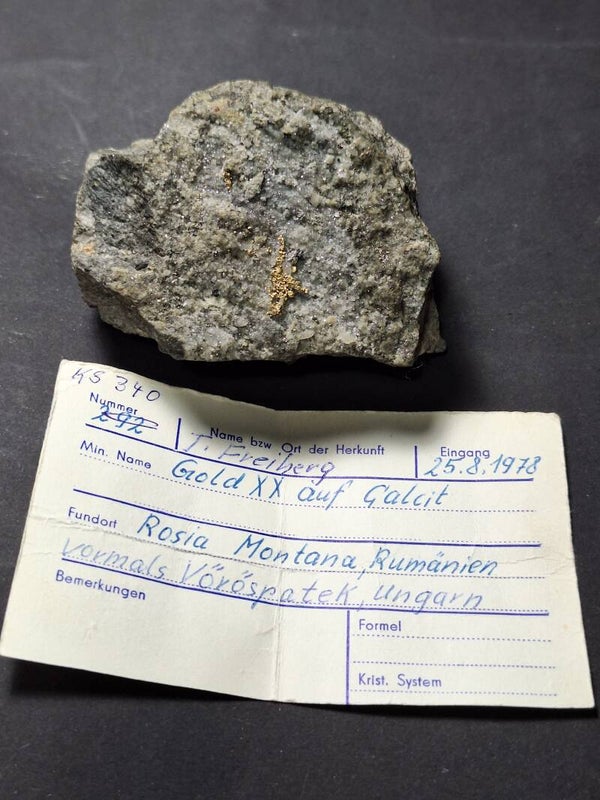 KS 340
Nummer
292
Name bzw Ort der Herkunft
T. Freiberg
Eingang
25.8.1978
Min. Name Gold XX auf Calcit
Fundort Rosia Montana, Rumänien
vormals Vöröspatek, Ungarn
Bemerkungen
Formel
Krist. System